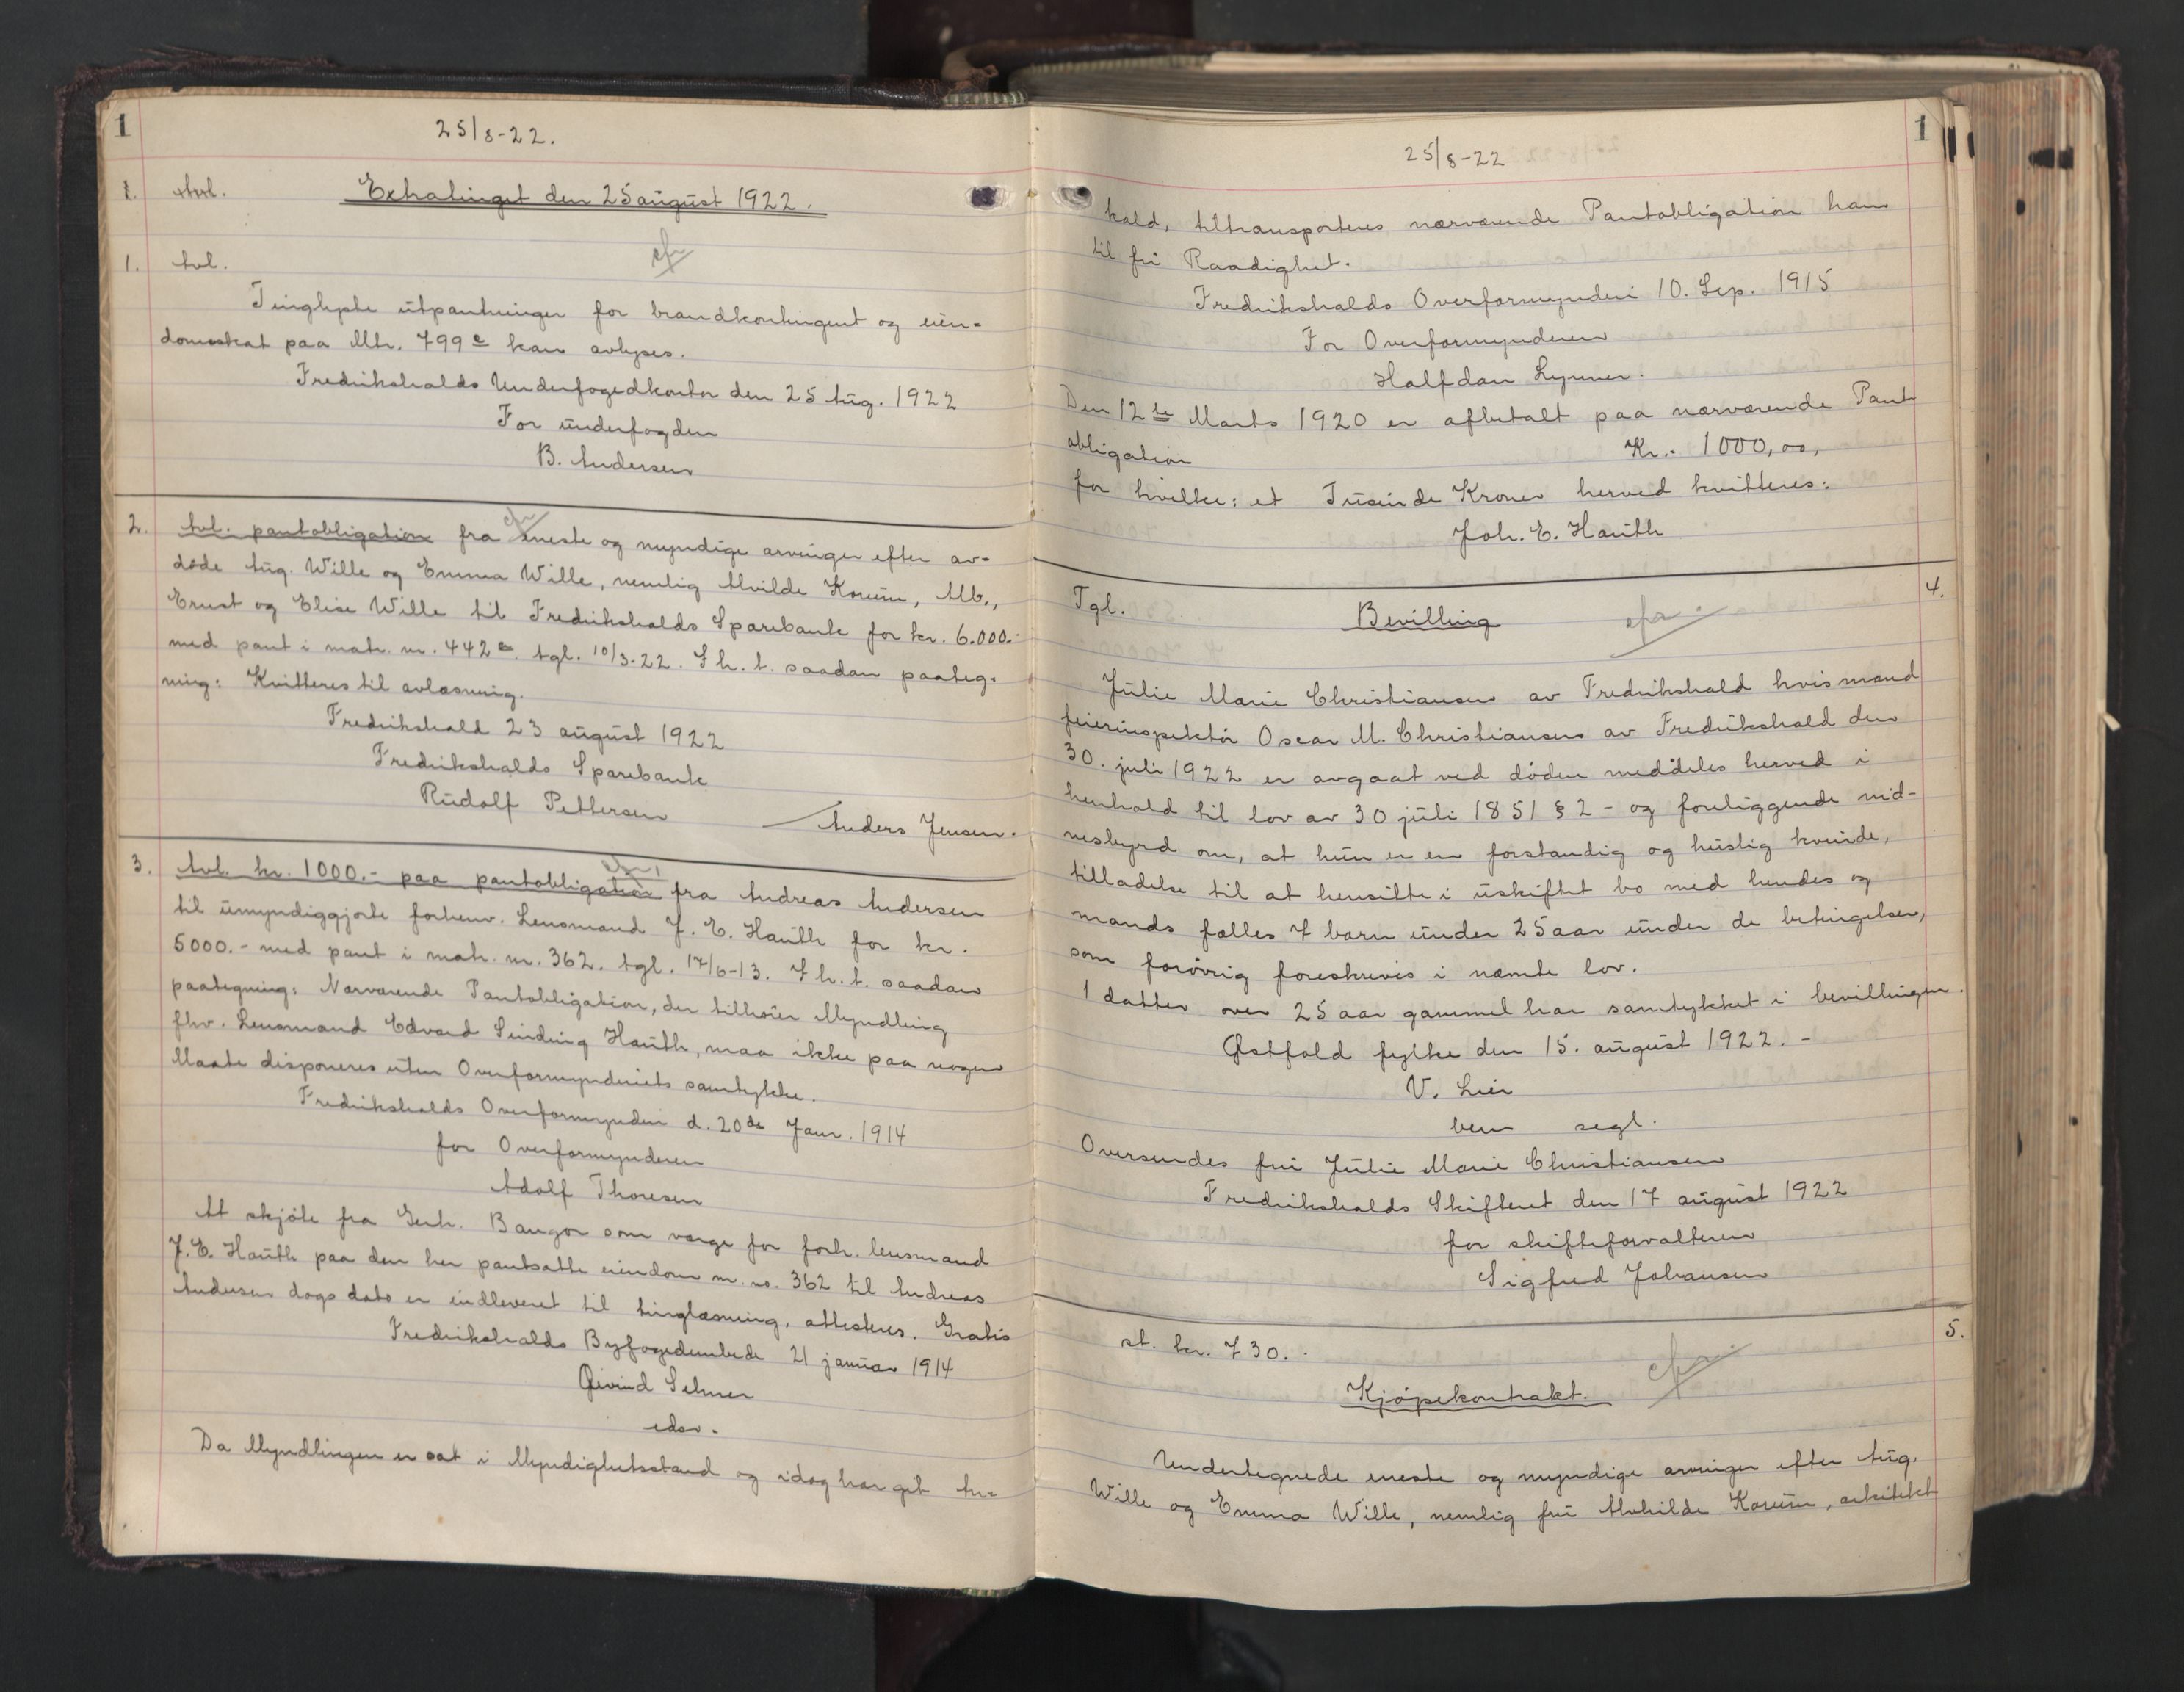 1
25/8-22.
1.
Extratinget den 25 august 1922.
cfr
1. Avl.
Tinglyste utpantninger for brandkontingent og eien=
domsskat paa Mtr. 799 c kan avlyses.
Fredrikshalds Underfogedkontor den 25 Aug. 1922
For underfogden
B. Andersen
2. Avl. pantobligation fra eneste og myndige arvinger efter av=
cfr
døde Aug. Wille og Emma Wille, nemlig Alvilde Korum, Alb.,
Ernst og Elise Wille til Fredrikshalds Sparebank for kr. 6.000.-
med pant i matr. nr. 442 tgl. 10/3-22. I h. t. saadan paateg=
ning: Kvitteres til avlæsning.
Fredrikshald 23 august 1922
Fredrikshalds Sparebank
Rudolf Pettersen
Anders Jensen.
3. Avl. kr. 1000.- paa pantobligation fra Andreas Andersen
cfr
til umyndiggjorte forhenv. Lensmand J. E. Hauth for kr.
5000.- med pant i matr. nr. 362. tgl. 17/6-13. I h. t. saadan
paategning: Nærværende Pantobligation, der tilhører Myndling
fhv. Lensmand Edvard Sinding Hauth, maa ikke paa nogen
Maate disponeres uten Overformynderiets samtykke.
Fredrikshalds Overformynderi d. 20de Janr. 1914
for Overformynderen
Adolf Thoresen
At skjöte fra Gerh. Bangor som verge for forh. lensmand
J. E. Hauth paa den her pantsatte eiendom m. no. 362 til Andreas
Andersen dags dato er indleveret til tinglæsning, attesteres. Gratis
Fredrikshalds Byfogedembede 21 januar 1914
Øivind Selmer
edsv.
Da Myndlingen er sat i Myndighetsstand og idag har git An=
1
25/8-22
kald, tiltransporteres nærværende Pantobligation ham
til fri Raadighet.
Fredrikshalds Overformynderi 10. Sep. 1915
For Overformynderen
Halfdan Lynner.
Den 12te Marts 1920 er afbetalt paa nærværende Pant
obligation Kr.- 1000,00,
for hvilke: et Tusinde Kroner herved kvitteres:
Joh. E. Hauth
4.
Tgl. Bevilling
cfr.
Julie Marie Christiansen av Fredrikshald hvis mand
feierinspektör Oscar M. Christiansen av Fredrikshald den
30. juli 1922 er avgaat ved döden meddeles herved i
henhold til lov av 30 juli 1851 § 2 - og foreliggende vid-
nesbyrd om, at hun er en forstandig og huslig kvinde,
tilladelse til at hensitte i uskiftet bo med hendes og
mands fælles 7 barn under 25 aar under de betingelser,
som forövrig foreskrevis i nævnte lov.
1 datter over 25 aar gammel har samtykket i bevillingen.
Østfold fylke den 15. august 1922. -
V. Lier
bem segl.
Oversendes fru Julie Marie Christiansen
Fredrikshalds Skifteret den 17 august 1922
for skifteforvalteren
Sigfred Johansen
5.
st. kr. 730.-
cfr.
Kjöpekontrakt.
Undertegnede eneste og myndige arvinger efter Aug.
Wille og Emma Wille, nemlig fru Alvhilde Korum, arkitekt